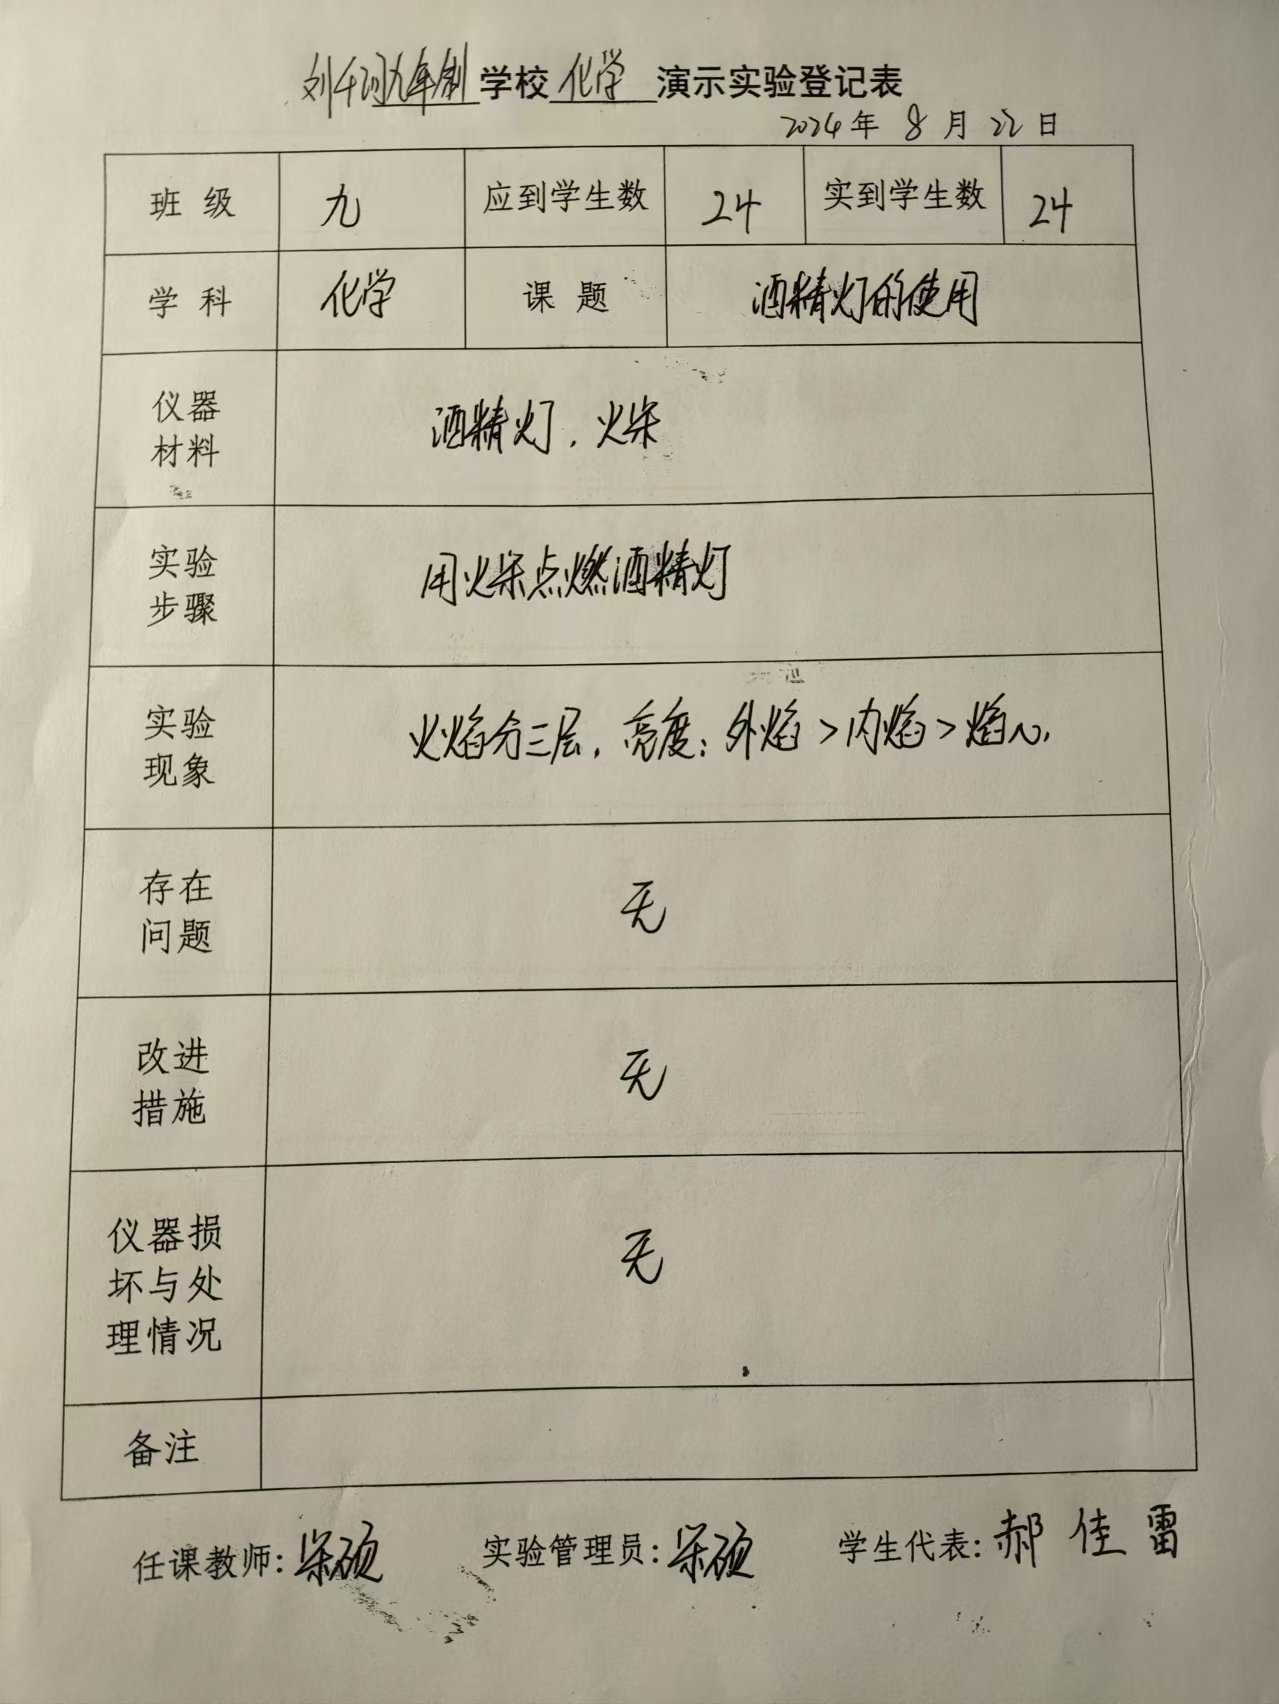 刘千河九年制学校化学演示实验登记表
2024年 8月 22日
班 级 九 应到学生数 24 实到学生数 24
学 科 化学 课 题 酒精灯的使用
仪器
材料
酒精灯,火柴
实验
步骤
用火柴点燃酒精灯
实验
现象
火焰分三层,亮度:外焰>内焰>焰心.
存在
问题
无
改进
措施
无
仪器损
坏与处
理情况
无
备注
任课教师: 实验管理员: 学生代表:郝佳雷